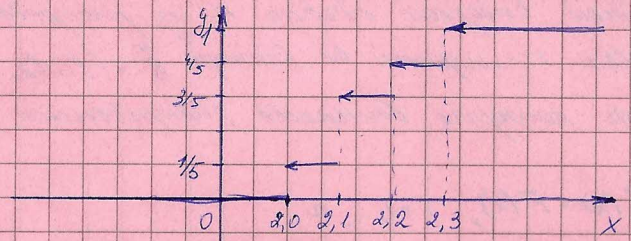 y
1
4/5
3/5
1/5
0 2,0 2,1 2,2 2,3 x